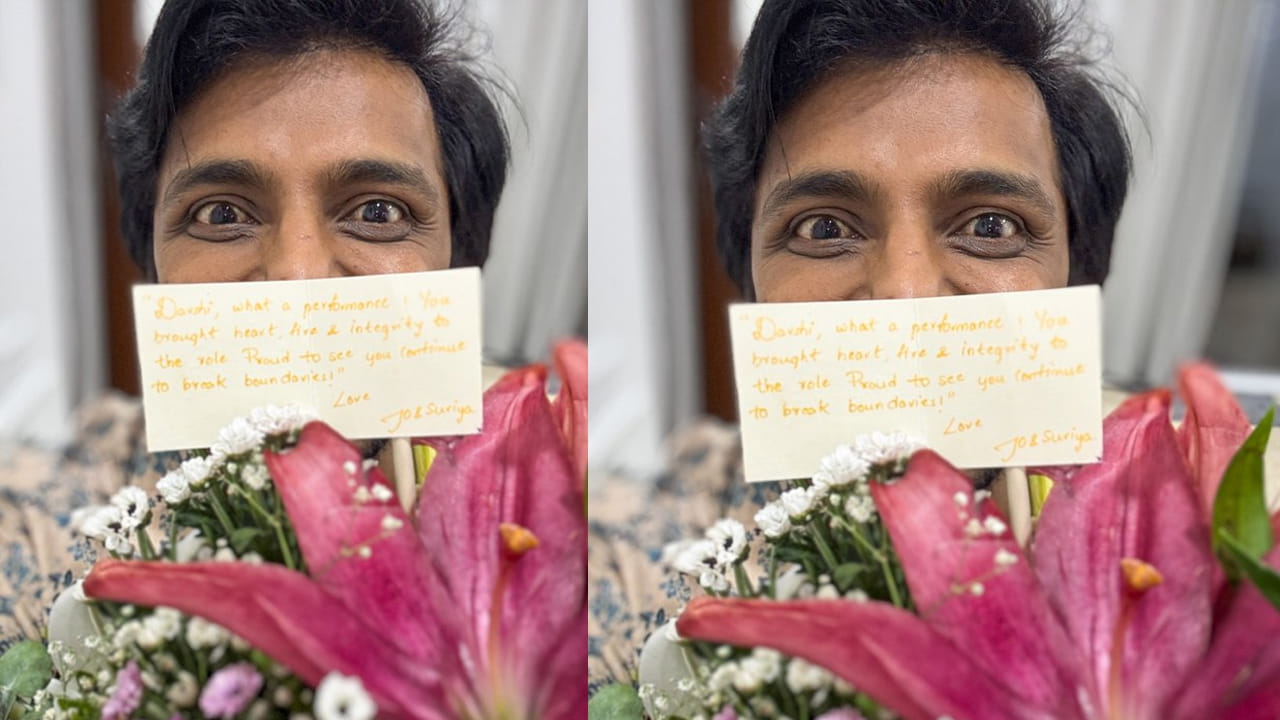 "Darshi, what a performance ! You
brought heart, fire & integrity to
the role Proud to see you continue
to break boundaries!"
Love
JO & Suriya
"Darshi, what a performance ! You
brought heart, fire & integrity to
the role Proud to see you continue
to break boundaries!"
Love
JO & Suriya